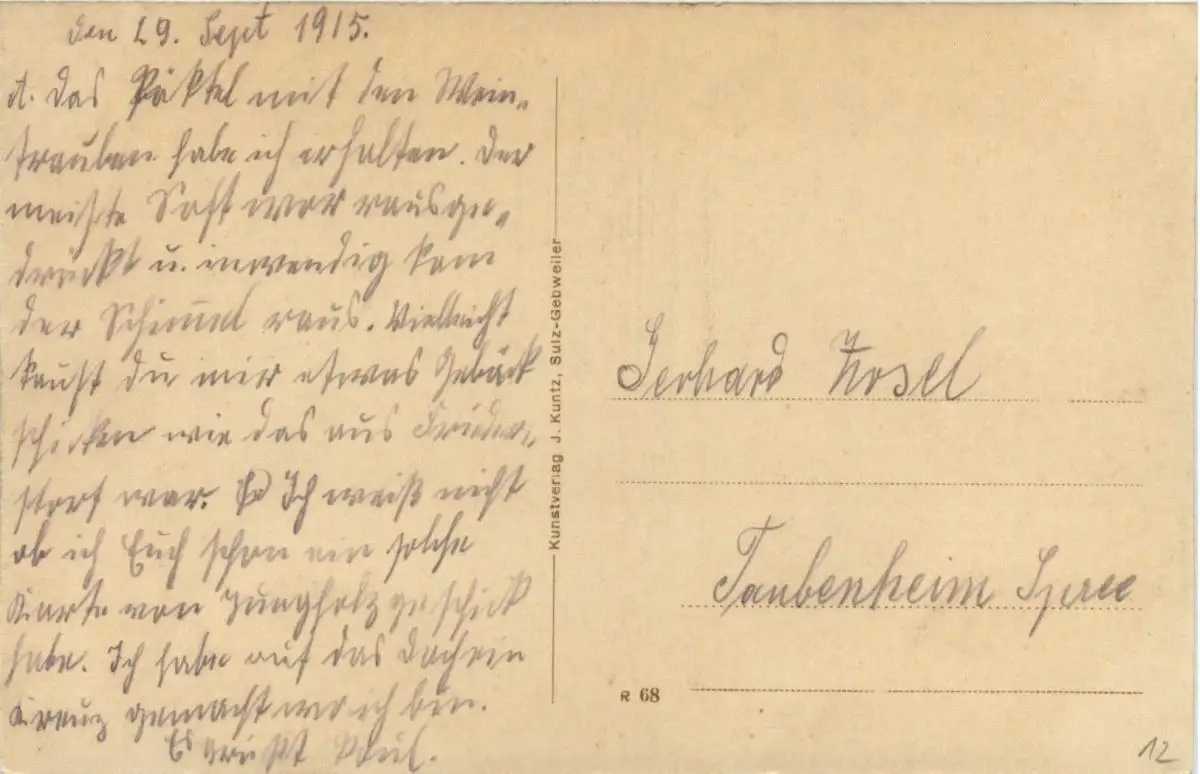 den 29. Sept 1915.
d. Das Päktel mit den Wein-
trauben habe ich erhalten. Der
meiste Saft war rausge-
drückt u. inwendig kam
der Schimmel raus. Vielleicht
kaufst du mir etwas Gebäck
schicken wie das aus Frieder-
storf war. Ich weiß nicht
ob ich Euch schon ein solche
Karte von Jungholz geschickt
habe. Ich habe auf das Dach ein
Kreuz gemacht wo ich bin.
Es grüßt Paul.
Kunstverlag J. Kuntz, Sulz-Gebweiler
Gerhard Kosel
Taubenheim Spree
R 68
12